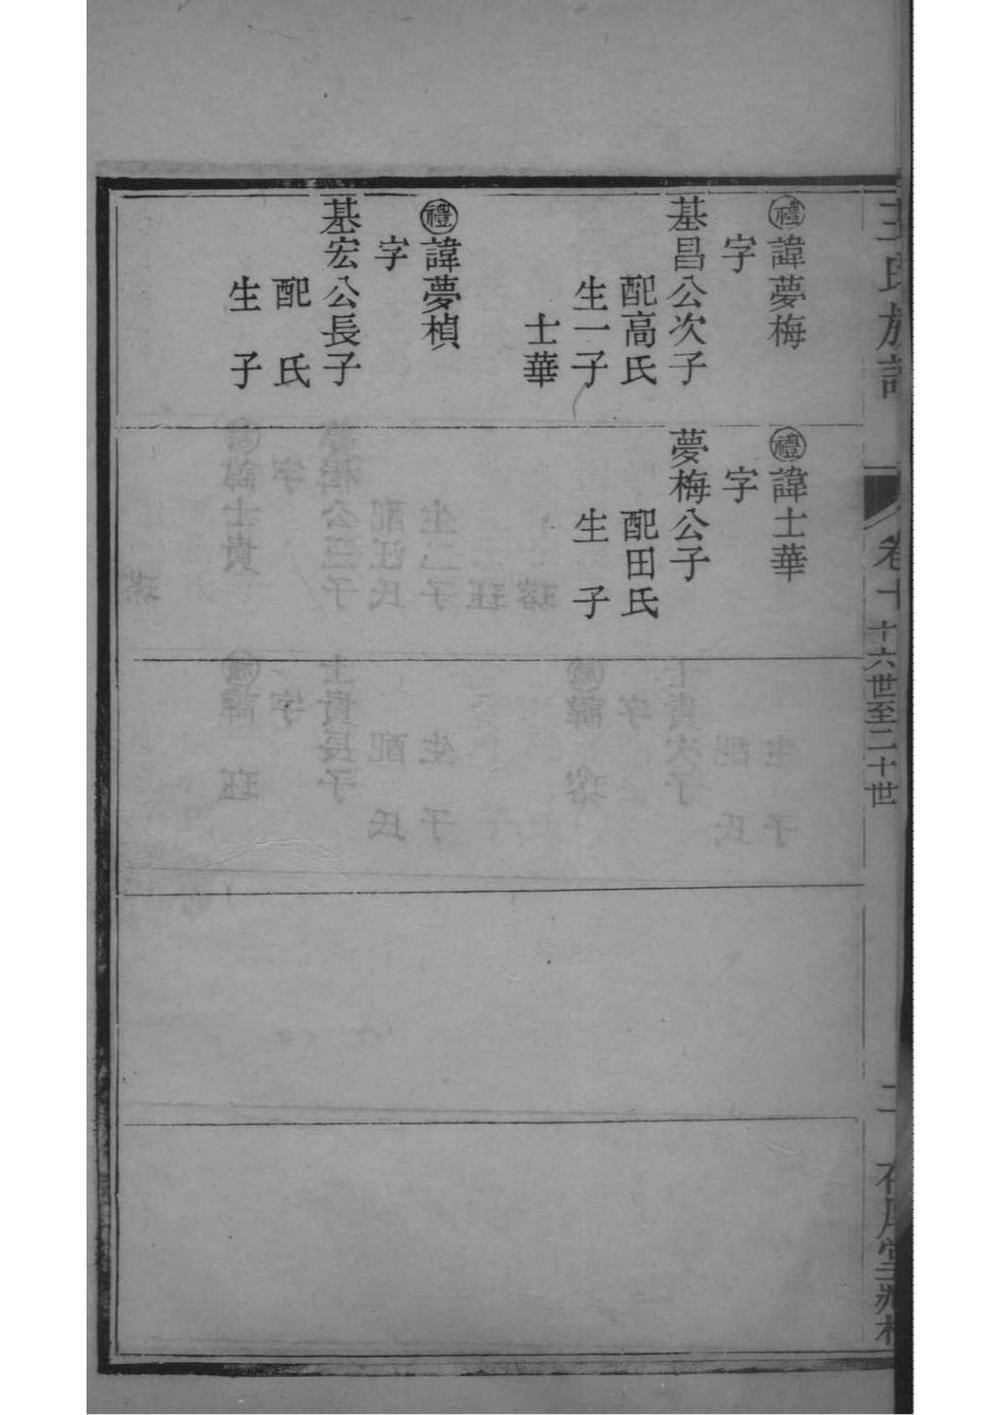 王氏族譜
卷十
十六世至二十世
二
禮諱夢梅
字
基昌公次子
配高氏
生一子
士華
禮諱夢楨
字
基宏公長子
配 氏
生 子
禮諱士華
字
夢梅公子
配田氏
生 子